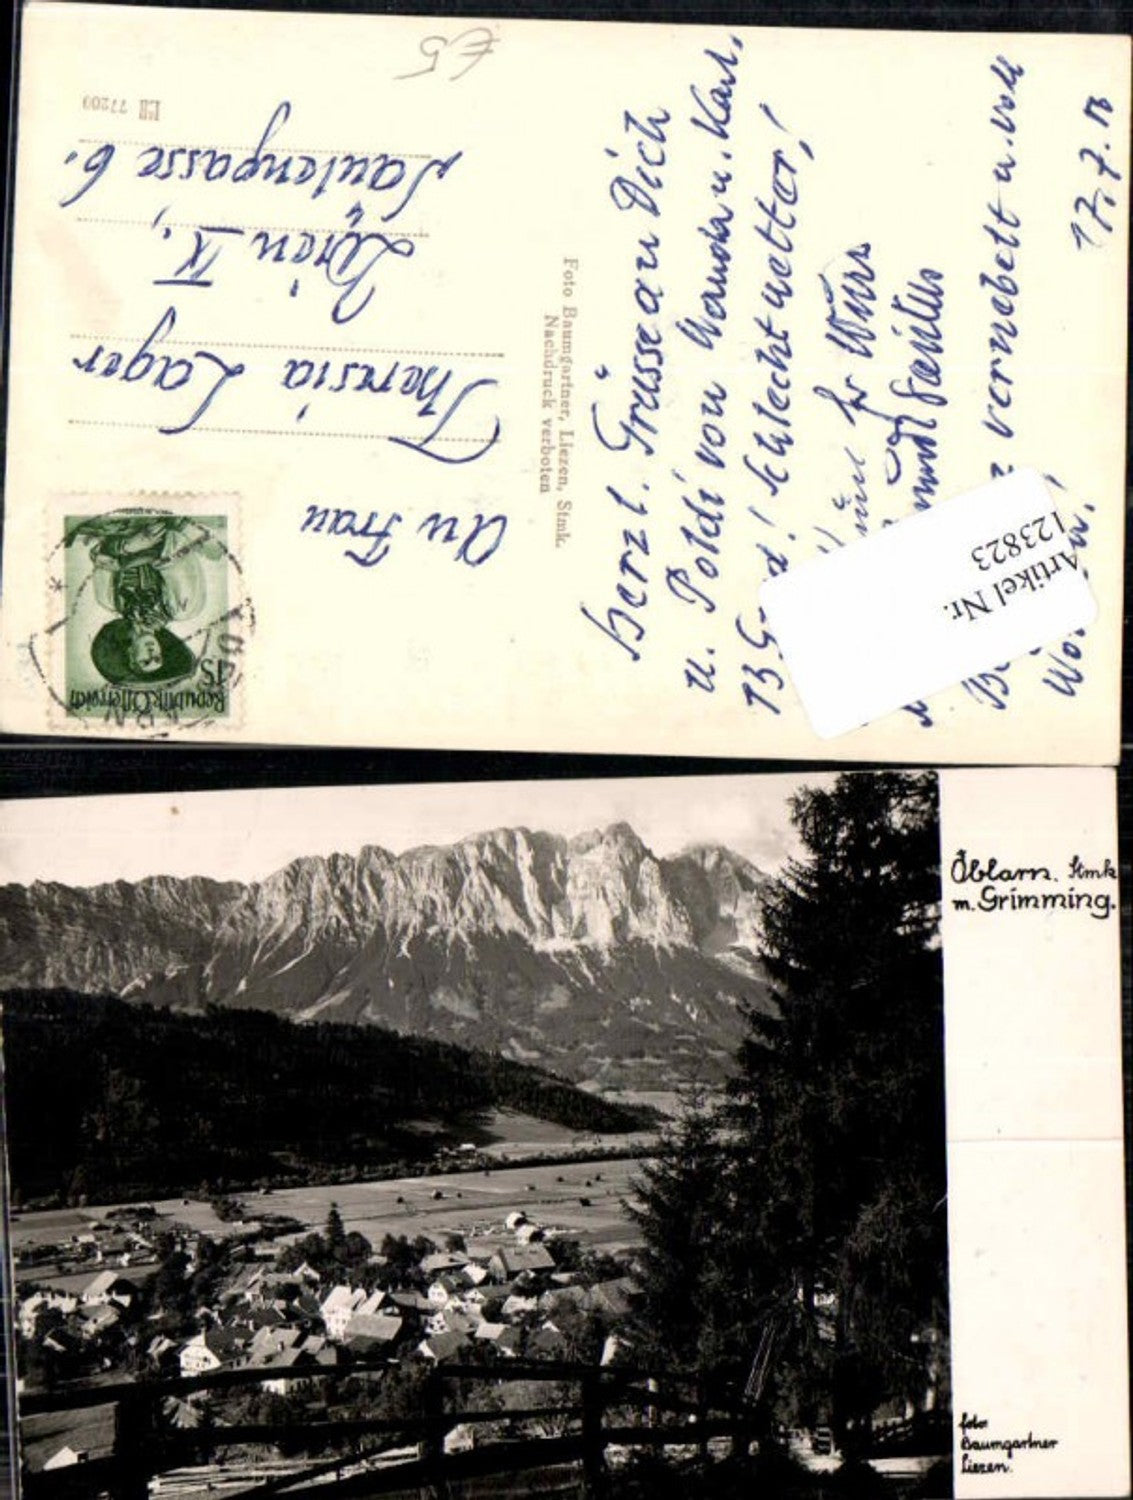 €5
LH 77209
An Frau
Theresia Lager
Wien IX.,
Lautengasse 6.
Foto Baumgartner, Liezen, Stmk.
Nachdruck verboten
Republik Österreich
1S
Herzl. Grüsse an Dich
u. Poldi von Wanda u. Karl.
! Schlecht wetter!
vernebelt u. voll
17.7.
Artikel Nr.
123823
Öblarn. Stmk
m. Grimming.
foto
Baumgartner
Liezen.